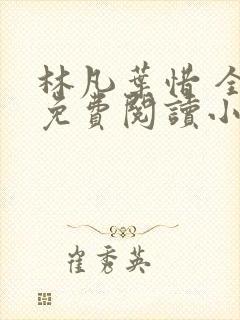 林凡葉惜 全
免費閱讀小
崔秀英